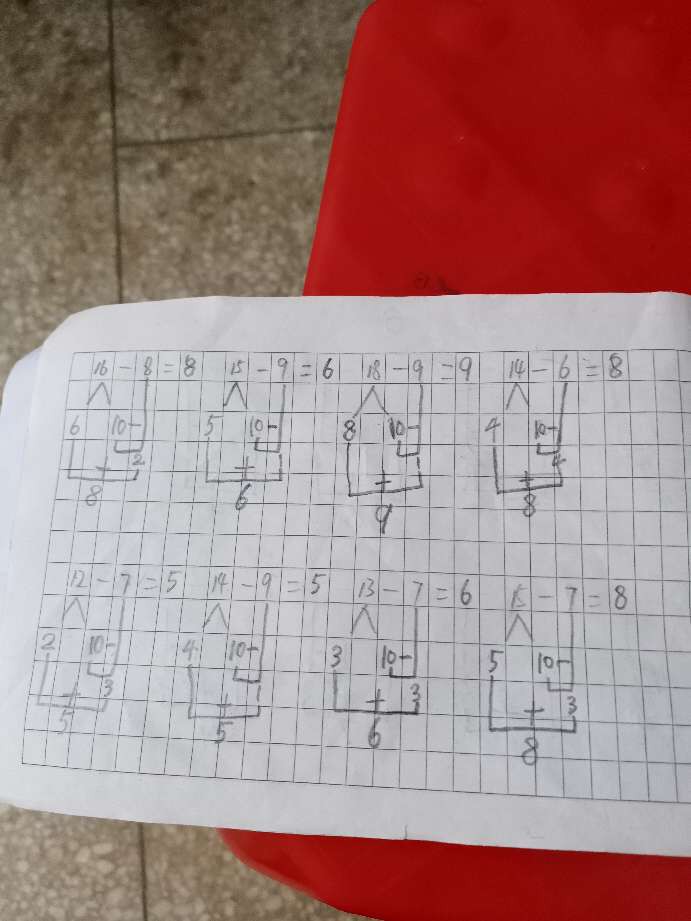 16 - 8 = 8 15 - 9 = 6 18 - 9 = 9 14 - 6 = 8
6 10 - 5 10 - 8 10 - 4 10 -
2 1 1 4
+ + + +
8 6 9 8
12 - 7 = 5 14 - 9 = 5 13 - 7 = 6 15 - 7 = 8
2 10 - 4 10 - 3 10 - 5 10 -
3 1 3 3
+ + + +
5 5 6 8